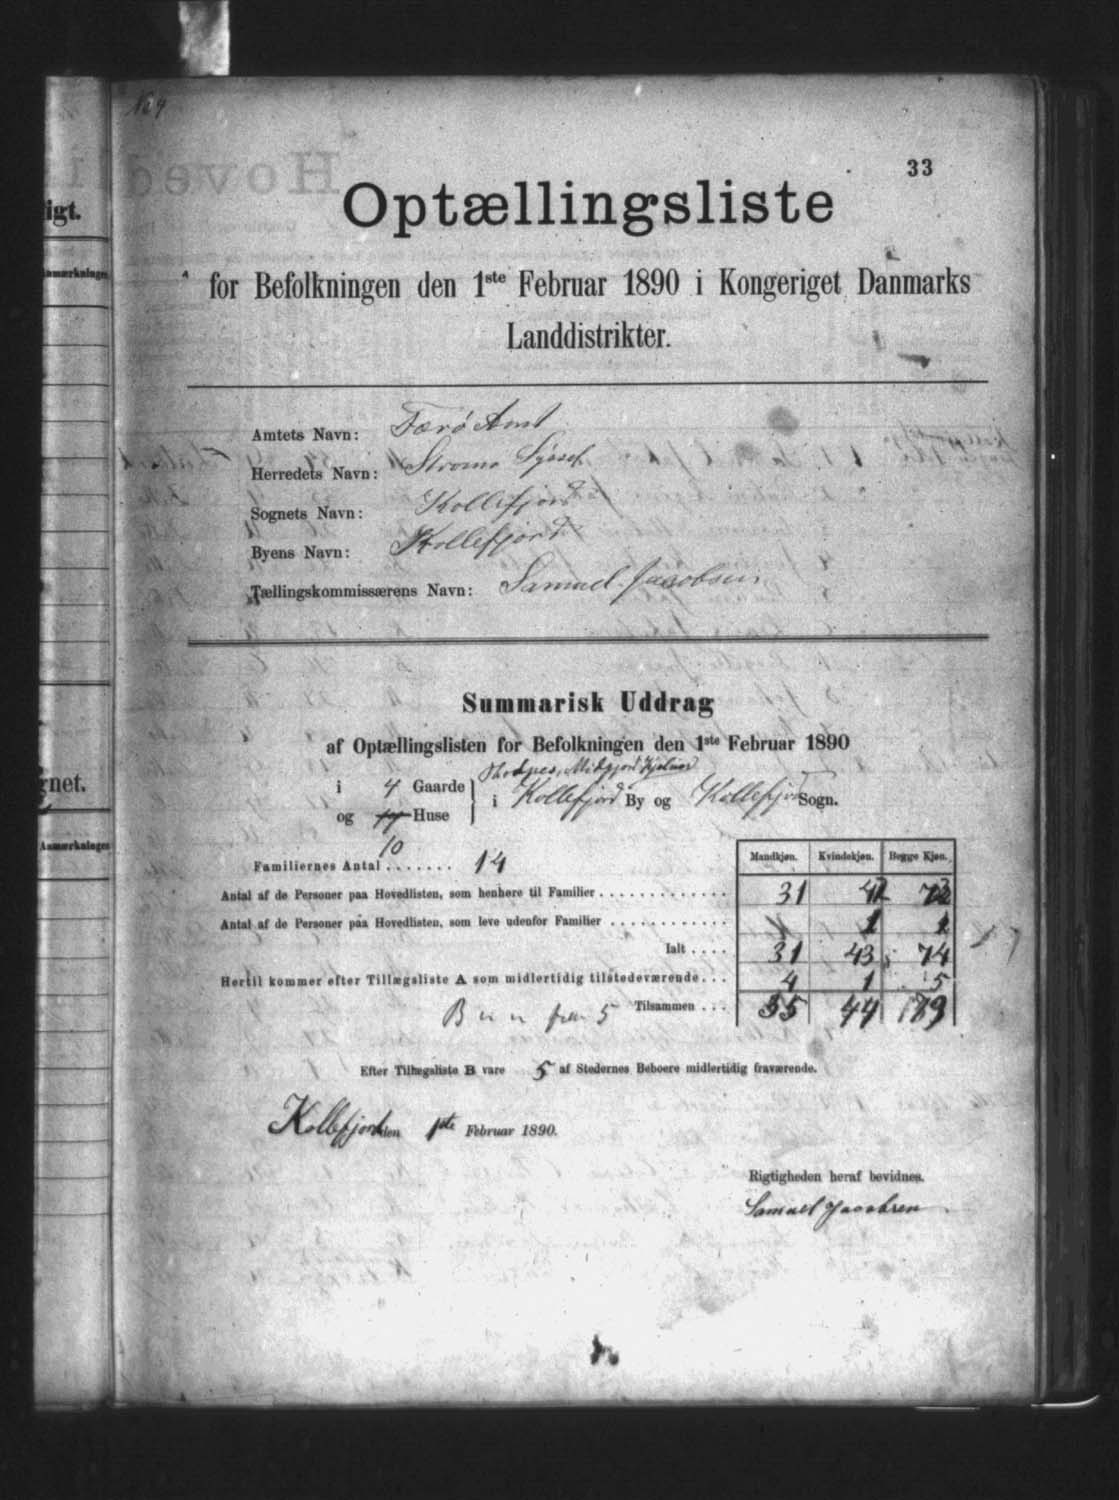 No 9
33
Optællingsliste
for Befolkningen den 1ste Februar 1890 i Kongeriget Danmarks
Landdistrikter.
igt.
Anmærkninger
Amtets Navn: Færø Amt
Herredets Navn: Strømø Syssel
Sognets Navn: Kollefjord
Byens Navn: Kollefjord
Tællingskommissærens Navn: Samuel Jacobsen
Summarisk Uddrag
af Optællingslisten for Befolkningen den 1ste Februar 1890
i 4 Gaarde
i Kollefjord By og Kollefjord Sogn.
og Huse
10
gnet.
Anmærkninger
Familiernes Antal ....... 14
Mandkjøn. Kvindekjøn. Begge Kjøn.
Antal af de Personer paa Hovedlisten, som henhøre til Familier ............. 31 42 73
Antal af de Personer paa Hovedlisten, som leve udenfor Familier ............ 1 1
Ialt .... 31 43 74
Hertil kommer efter Tillægsliste A som midlertidig tilstedeværende... 4 1 5
B " " fra 5 Tilsammen ... 35 44 79
Efter Tillægsliste B vare 5 af Stedernes Beboere midlertidig fraværende.
Kollefjord den 1ste Februar 1890.
Rigtigheden heraf bevidnes.
Samuel Jacobsen